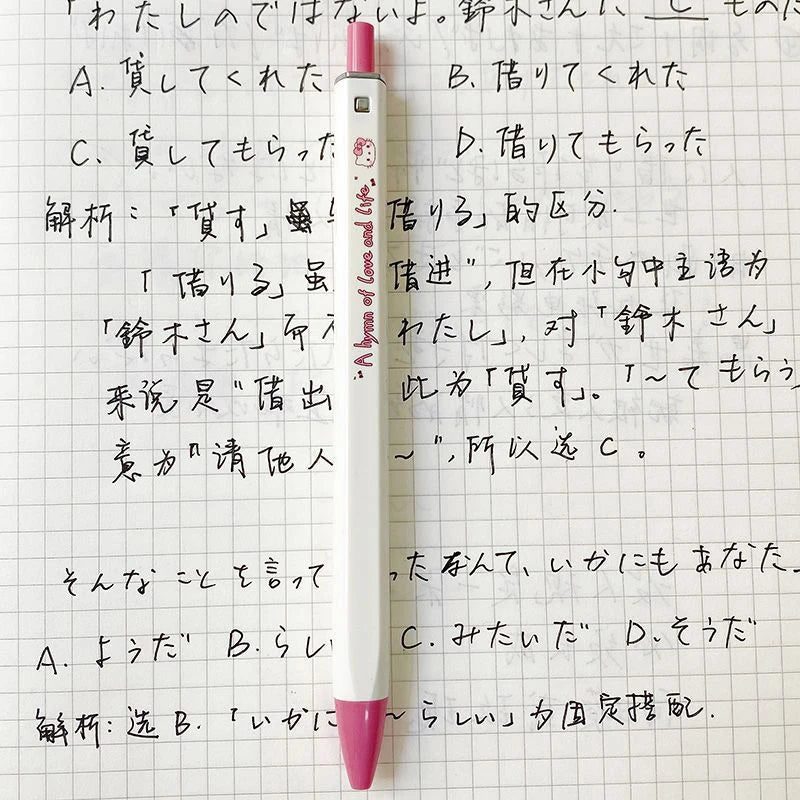 「わたしのではないよ。鈴木さんに C もの
A. 貸してくれた B. 借りてくれた
C. 貸してもらった D. 借りてもらった
解析：「貸す」虽 借りる」的区分.
「借りる」虽 借进"，但在小句中主语为
「鈴木さん」而 わたし」，对「鈴木さん」
来说是"借出 此为「貸す」。「～てもらう
意为"请他人 ～"，所以选C。
そんなことを言って ったなんて、いかにもあなた
A. ようだ B. らし C. みたいだ D. そうだ
解析：选B.「いかに ～らしい」为固定搭配.
A hymn of love and life